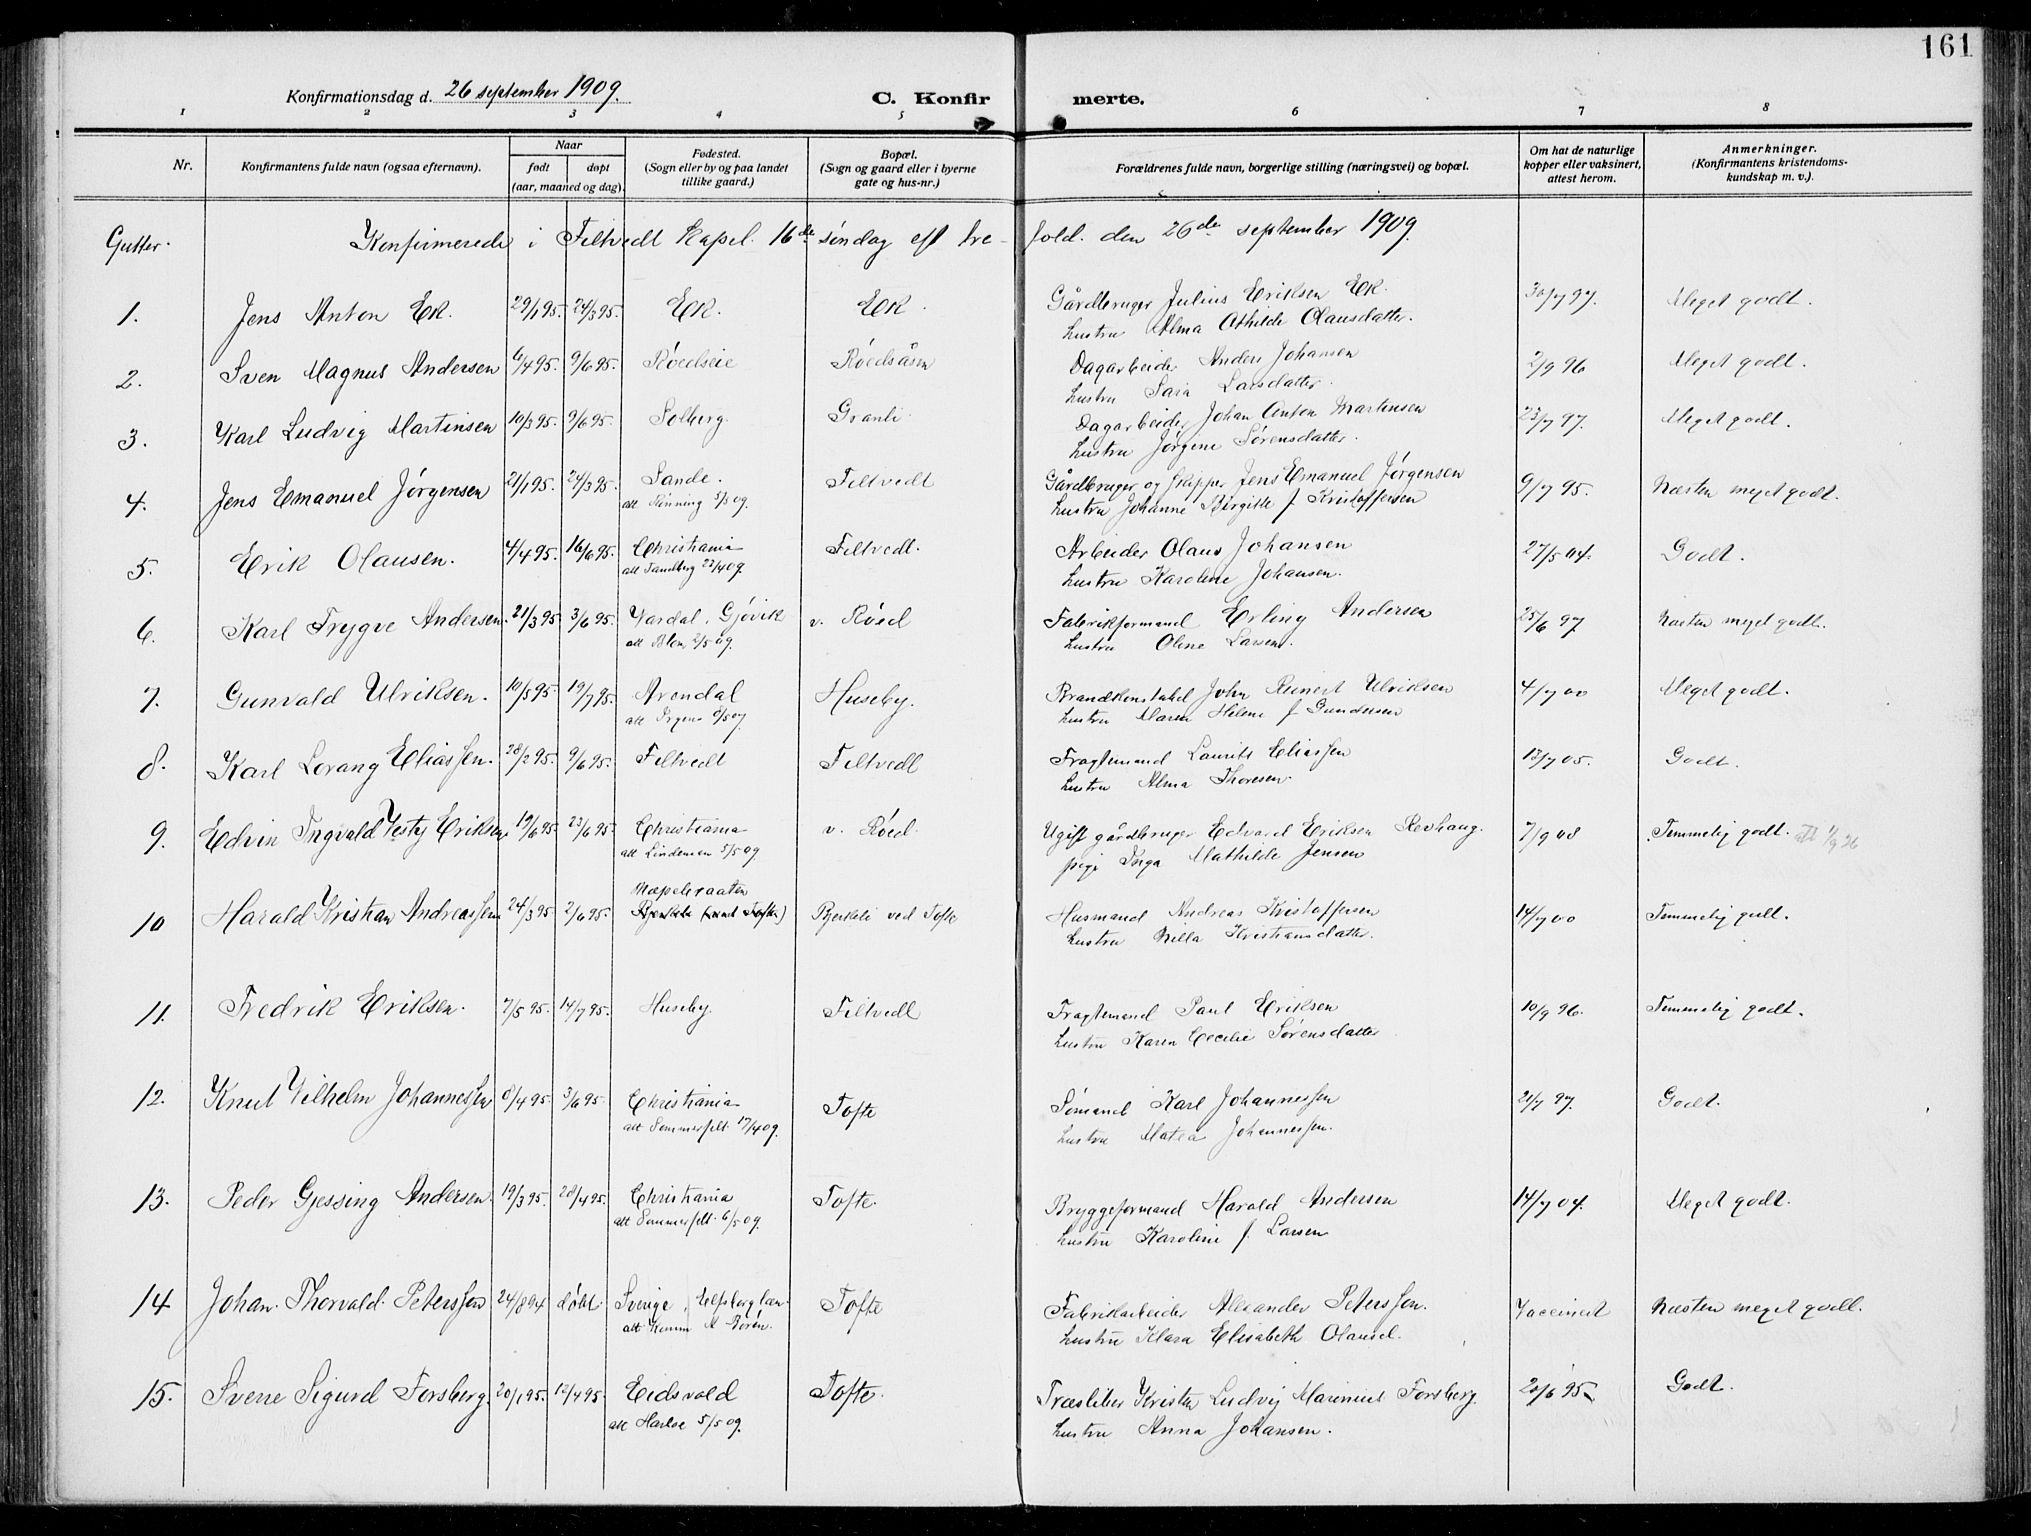 161
Konfirmationsdag d. 26 september 1909.
C. Konfirmerte.
1 2 3 4 5 6 7 8
Nr. Konfirmantens fulde navn (ogsaa efternavn). Naar født døpt (aar, maaned og dag). Fødested. (Sogn eller by og paa landet tillike gaard.) Bopæl. (Sogn og gaard eller i byerne gate og hus-nr.) Forældrenes fulde navn, borgerlige stilling (næringsvei) og bopæl. Om hat de naturlige kopper eller vaksinert, attest herom. Anmerkninger. (Konfirmantens kristendomskundskap m. v.).
Gutter. Konfirmerede i Filtvedt Kapel 16de søndag eft trefold. den 26de september 1909.
1. Jens Anton Ek. 29/1 95. 24/3 95. Ek. Ek. Gårdbruger Julius Eriksen Ek. 30/7 97. Meget godt.
hustru Alma Othilde Olausdatter.
2. Sven Magnus Andersen 6/4 95. 9/6 95. Røedseie Røedsåsen Dagarbeider Anders Johansen 2/9 96 Meget godt.
hustru Sara Larsdatter.
3. Karl Ludvig Martinsen 10/3 95. 9/6 95. Solberg. Granli. Dagarbeider Johan Anton Martinsen 23/7 97. Meget godt.
hustru Jørgene Sørensdatter.
4. Jens Emanuel Jørgensen 21/1 95. 24/3 95. Sande. Filtvedt Gårdbruger og skipper Jens Emanuel Jørgensen 9/7 95. Næsten meget godt.
att Rønning 5/5 09. hustru Johanne Birgitte f. Kristoffersen
5. Erik Olausen. 4/4 95. 16/6 95. Christiania Filtvedt. Arbeider Olaus Johansen 27/5 04. Godt.
att Tandberg 22/4 09. hustru Karoline Johansen.
6. Karl Trygve Andersen. 21/3 95. 3/6 95. Vardal, Gjøvik v. Røed Fabrikformand Erling Andersen 25/6 97 Næsten meget godt.
att Blom 2/5 09. hustru Oline Larsen.
7. Gunvald Ulriksen. 10/5 95. 19/7 95. Arendal Huseby. Brandkonstabel John Reinert Ulriksen 4/7 00 Meget godt.
hustru Maren Helene f. Gundersen
8. Karl Lorang Eliassen. 28/2 95. 9/6 95. Filtvedt Filtvedt Fragtemand Laurits Eliassen 13/7 05. Godt.
hustru Alma Thoresen.
9. Edvin Ingvald Vesty Eriksen 19/6 95. 23/6 95. Christiania v. Røed. Ugift gårdbruger Edvard Eriksen Revhaug. 7/9 08 Temmelig godt. att 1/9 26
att Lindeman 5/5 09 pige Inga Mathilde Jensen
10 Harald Kristian Andreassen 24/3 95. 2/6 95. Mæpelsaaten Bjerkeli (ved Tofte) Bjerkeli ved Tofte Husmand Andreas Kristoffersen 14/7 00 Temmelig godt.
hustru Nilla Kristiansdatter.
11. Fredrik Eriksen. 7/5 95. 14/7 95. Huseby. Filtvedt Fragtemand Paul Eriksen 10/9 96. Temmelig godt.
hustru Karen Cecilie Sørensdatter
12. Knut Vilhelm Johannessen 8/4 95. 3/6 95. Christiania Tofte Sømand Karl Johannessen 21/7 97. Godt.
att Sommerfelt 17/4 09. hustru Matea Johannessen.
13. Peder Gjessing Andersen 19/3 95. 28/4 95. Christiania Tofte. Bryggeformand Harald Andersen 14/7 04. Meget godt.
att Sommerfelt 6/5 09. hustru Karoline f. Larsen
14 Johan Thorvald Peterssen 24/8 94 døbt Sverige, Elfsborg læn Tofte Fabrikarbeider Alexander Peterssen. Vaccineret Næsten meget godt.
hustru Klara Elisabeth
15. Sverre Sigurd Forsberg. 20/1 95. 12/4 95. Eidsvold Tofte. Træsliber Kristen Ludvig Marinius Forsberg. 20/6 95. Godt.
att Harloe 5/5 09. hustru Anna Johansen.